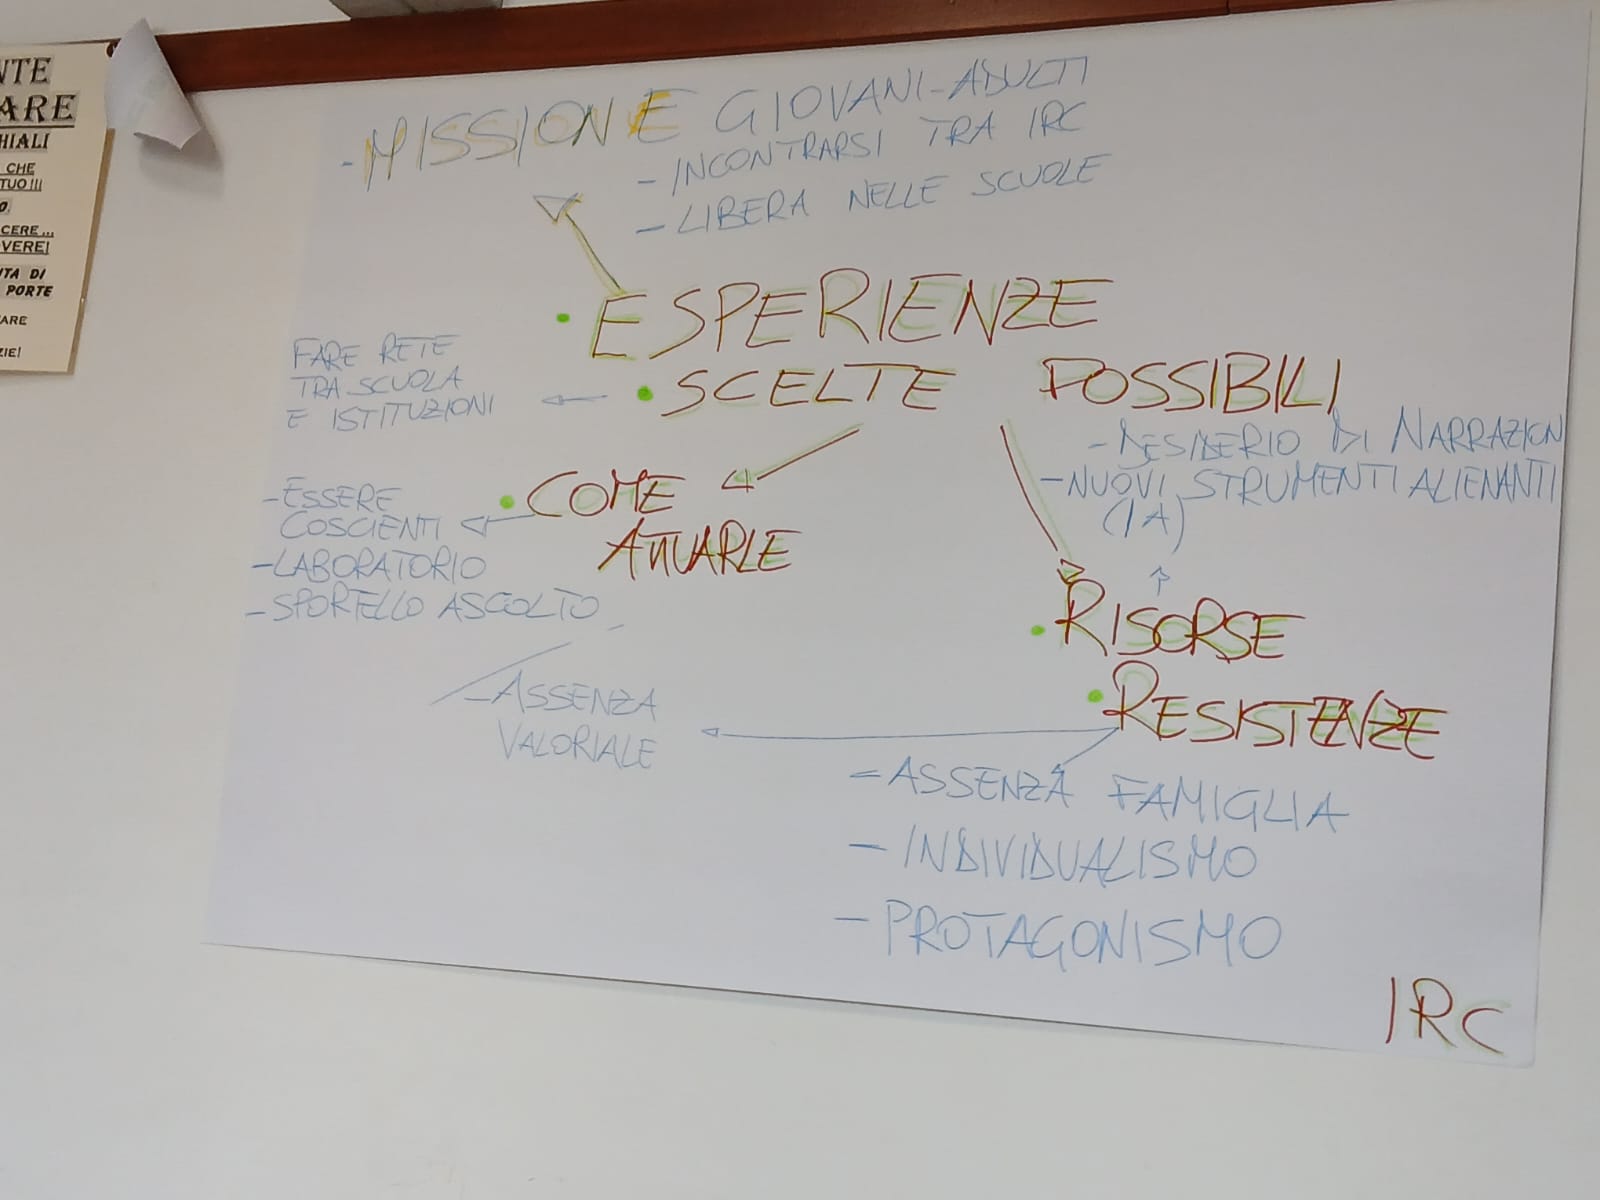 NTE
ARE
HIALI
CHE
TUO!!!
O
CERE...
OVERE!
ITA DI
PORTE
ARE
ZIE!
- MISSION E GIOVANI-ADULTI
- INCONTRARSI TRA IRC
- LIBERA NELLE SCUOLE
• ESPERIENZE
• SCELTE POSSIBILI
FARE RETE
TRA SCUOLA
E ISTITUZIONI
- DESIDERIO DI NARRAZION
- NUOVI STRUMENTI ALIENANTI
(IA)
• COME
ATTUARLE
- ESSERE
COSCIENTI
- LABORATORIO
- SPORTELLO ASCOLTO
• RISORSE
• RESISTENZE
- ASSENZA
VALORIALE
- ASSENZA FAMIGLIA
- INDIVIDUALISMO
- PROTAGONISMO
IRC